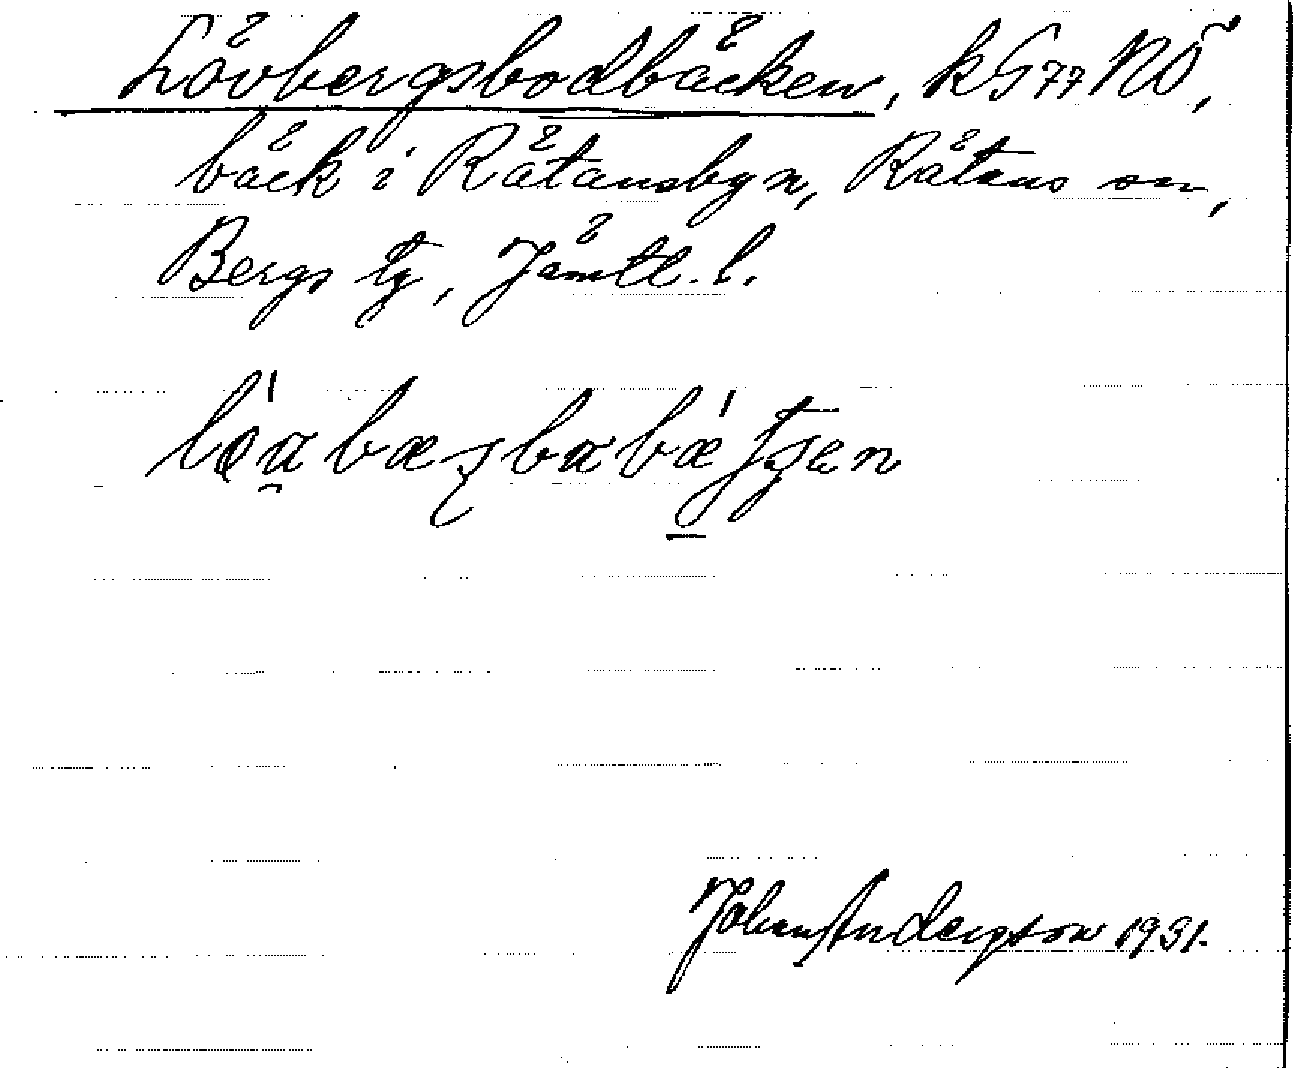 Lövbergsbodbäcken, kG77NÖ,
bäck i Rätansbyn, Rätans sn,
Bergs tg, Jämtl. l.
Johan Anderson 1931.